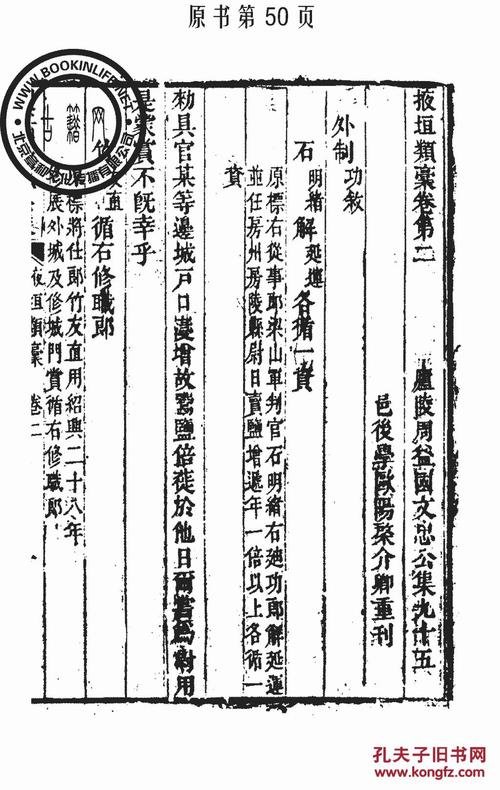 原书第50页
掖垣類稾卷第二 廬陵周益國文忠公集九十五
邑後學歐陽棨介卿重刊
外制 功敘
石明緒 解延運 各循一資
原標右從事郎梁山軍判官石明緒右廸功郎解延運
並任房州房陵縣尉日賣鹽增遞年一倍以上各循一
資
勑具官某等邊城戸口湊增故鬻鹽倍徙於他日爾嘗爲尉用
是蒙賞不旣幸乎
友直循右修職郎
標將仕郎竹友直用紹興二十八年
展外城及修城門賞循右修職郎
掖垣類稾 卷二
WWW.BOOKINLIFE.NET
网
籍
古
北京
有限公司
孔夫子旧书网
www.kongfz.com